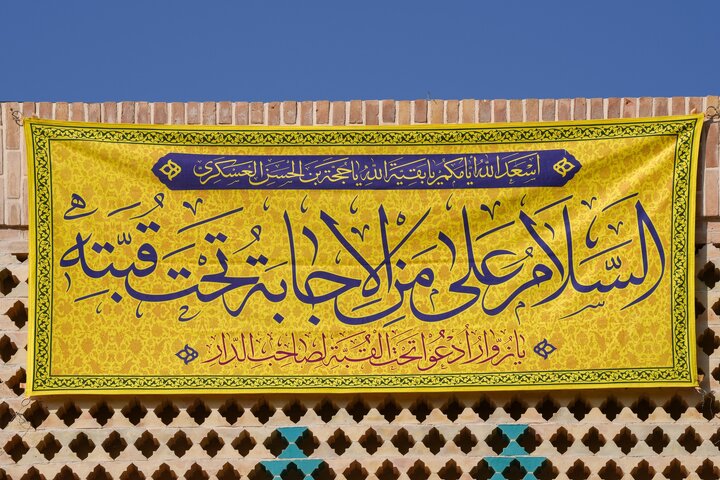 أسعد الله أيامكم يا بقية الله يا حجة بن الحسن العسكري
السلام على من الإجابة تحت قبته
يا زوار أدعوا تحت القبة لصاحب الدار